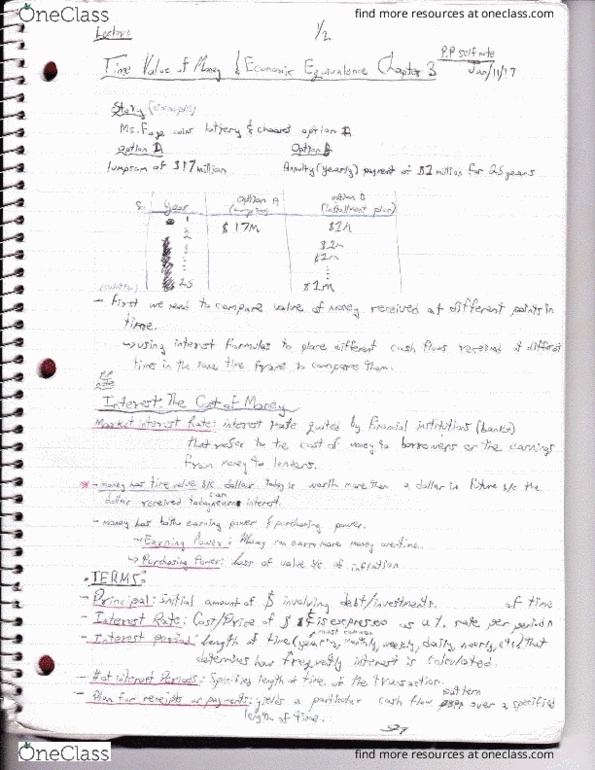 OneClass
find more resources at oneclass.com
Lecture
1/2
P.P self note
Time Value of Money & Economic Equivalence Chapter 3
Jan/11/17
Story (Example)
Ms. wins lottery & chooses option A
Option A
Option B
lumpsum of $17 million
Annuity (yearly) payment of $1 million for 25 years
Year
option A (lumpsum)
option B (installment plan)
1
$17M
$1M
2
$1M
$1M
25
$1M
- First we need to compare value of money received at different points in
time.
↳ using interest formulas to place different cash flows received at different
times in the same time frame to compare them.
P.P note
Interest: The Cost of Money
Market interest Rate: interest rate quoted by financial institutions (banks)
that refer to the cost of money to borrowers or the earnings
from money to lenders.
- money has time value b/c dollar today is worth more than a dollar in future b/c the
dollar received today can earn interest.
- money has both earning power & purchasing power.
→ Earning Power: Money can earn more money overtime.
↳ Purchasing Power: Loss of value b/c of inflation
• TERMS:
- Principal: Initial amount of $ involving debt/investments.
of time
- Interest Rate: Cost/Price of $ & is expressed as a % rate per period
most common
- Interest period: length of time (yearly, monthly, weekly, daily, hourly, etc) that
determines how frequently interest is calculated.
- # of interest Periods: Specified length of time of the transaction.
pattern
- Plan for receipts or payments: yields a particular cash flow over a specified
length of time.
OneClass
find more resources at oneclass.com